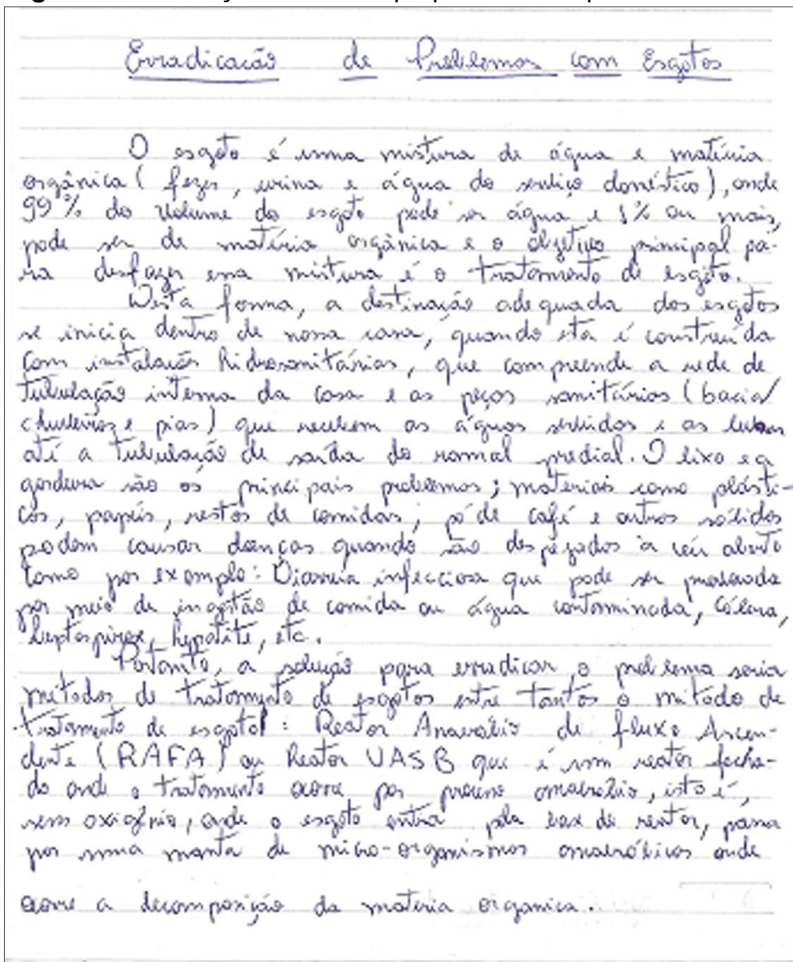 Erradicação de Problemas com Esgotos
O esgoto é uma mistura de água e matéria
orgânica ( fezes, urina e água do serviço doméstico), onde
99% do volume do esgoto pode ser água e 1% ou mais,
pode ser de matéria orgânica e o objetivo principal pa-
ra desfazer essa mistura é o tratamento de esgoto.
Desta forma, a destinação adequada dos esgotos
se inicia dentro de nossa casa, quando esta é construída
com instalações hidrosanitárias, que compreende a rede de
tubulação interna da casa e as peças sanitárias (bacia/
chuveiros e pias) que recebem as águas servidas e as levam
até a tubulação de saída do ramal predial. O lixo e a
gordura são os principais problemas; materiais como plásti-
cos, papéis, restos de comidas, pó de café e outros sólidos
podem causar doenças quando são despejados a céu aberto
como por exemplo: Diarreia infecciosa que pode ser
por meio de ingestão de comida ou água contaminada, Cólera,
leptospirose, hepatite, etc.
Portanto, a solução para erradicar o problema seria
métodos de tratamento de esgotos entre tantos o método de
tratamento de esgoto : Reator Anaeróbio de fluxo Ascen-
dente (RAFA) ou Reator UASB que é um reator fecha-
do onde o tratamento ocorre por processo anaeróbio, isto é,
sem oxigênio, onde o esgoto entra pela base do reator, passa
por uma manta de micro-organismos anaeróbicos onde
ocorre a decomposição da matéria organica.